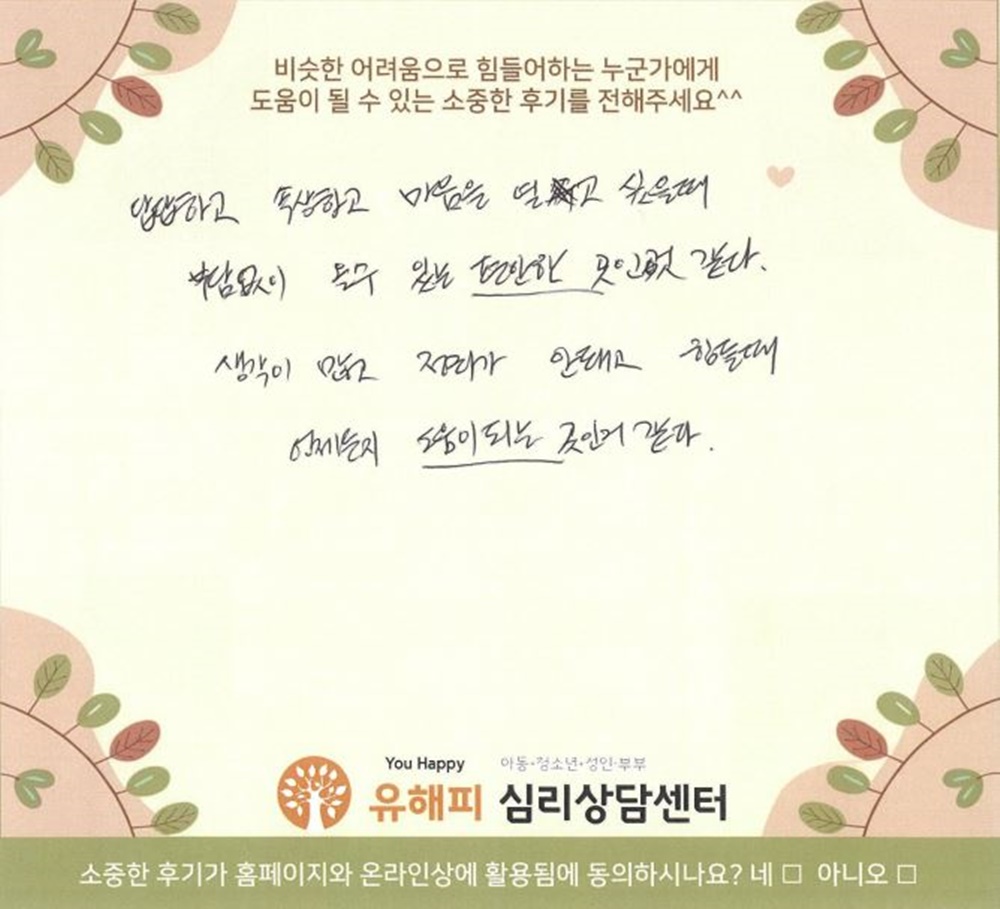 비슷한 어려움으로 힘들어하는 누군가에게
도움이 될 수 있는 소중한 후기를 전해주세요^^
답답하고 속상하고 마음을 열고 싶을때
부담없이 올수 있는 편안한 곳인것 같다.
생각이 많고 정리가 안돼고 힘들때
언제든지 도움이 되는 곳인거 같다.
You Happy 아동·청소년·성인·부부
유해피 심리상담센터
소중한 후기가 홈페이지와 온라인상에 활용됨에 동의하시나요? 네 □ 아니오 □